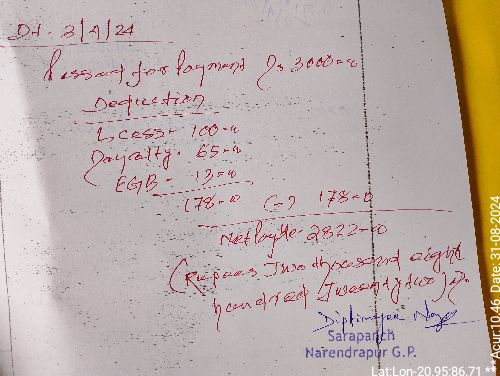 Dt. 3/9/24
Passed for Payment Rs 3000=00
Deduction
L. cess - 100=00
Royalty - 65=00
EGB - 13=00
178=00 (-) 178=00
Net Payble - 2822=00
(Rupees Two thousand eight
hundred Twenty two)
Sarapanch
Narendrapur G.P.
Lat:Lon-20.95:86.71 **
** Acur:10.46 Date: 31-08-2024